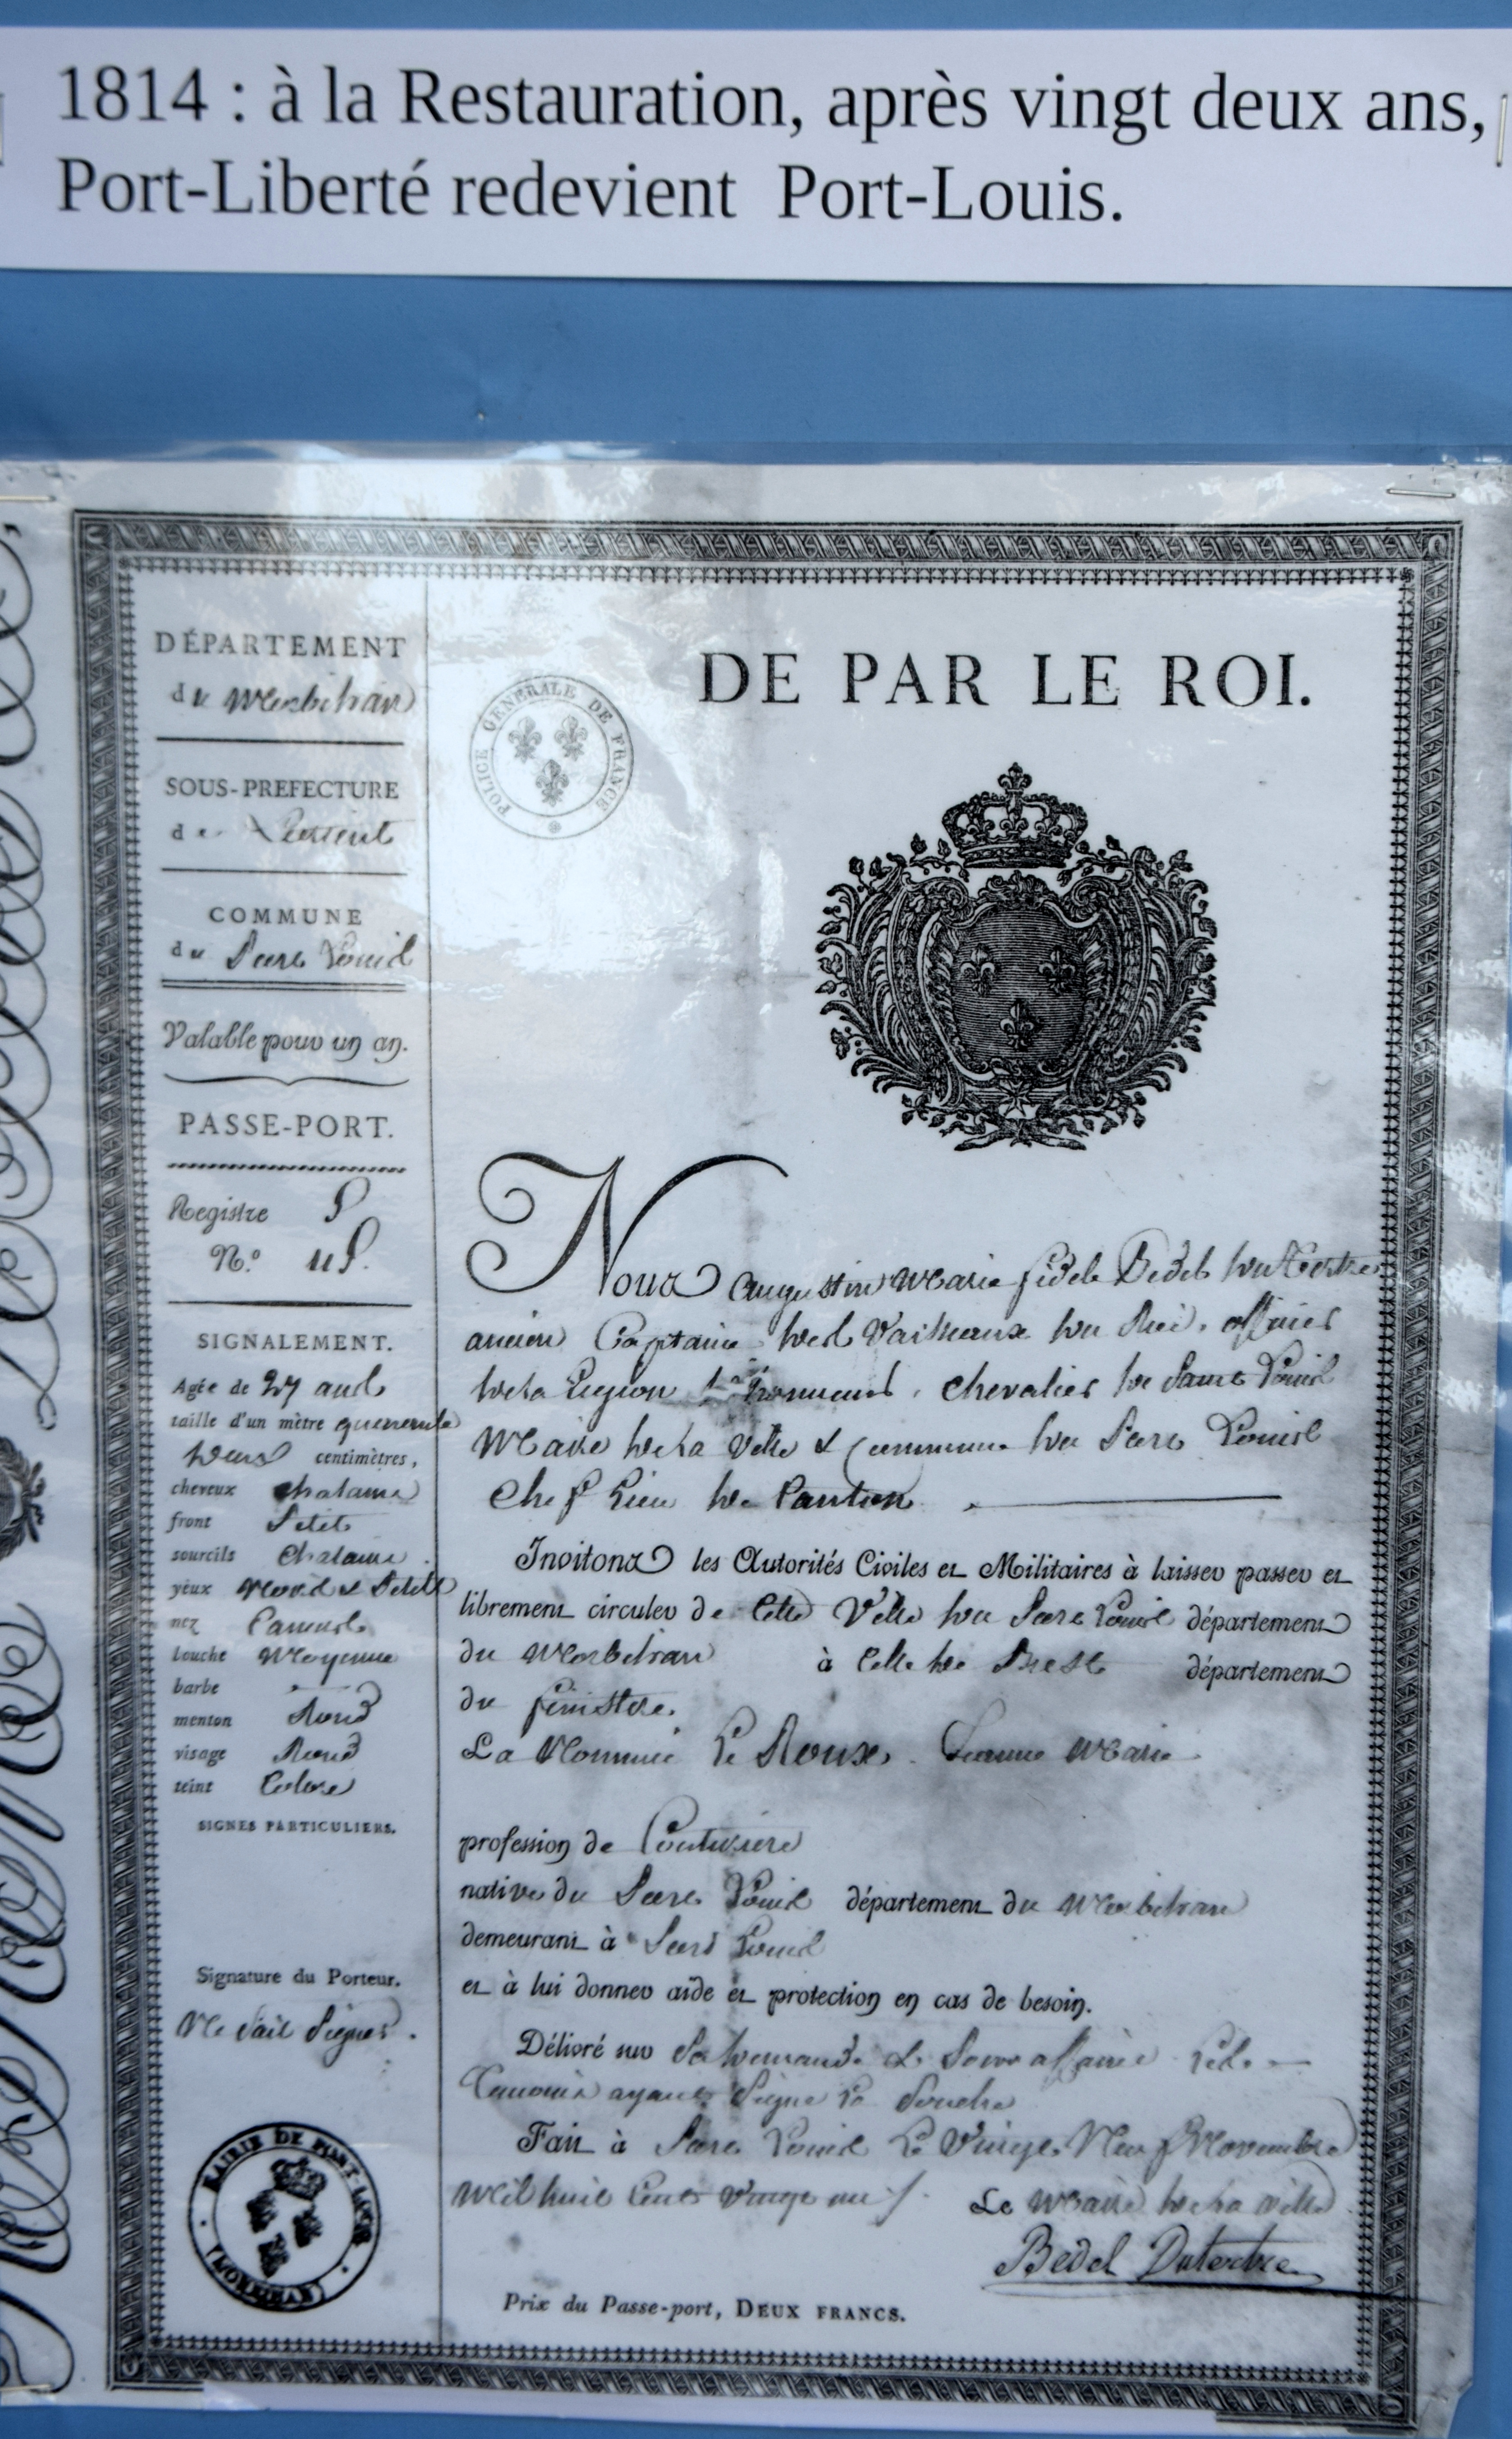 1814 : à la Restauration, après vingt deux ans,
Port-Liberté redevient Port-Louis.
DÉPARTEMENT
du Morbihan
SOUS-PREFECTURE
de Lorient
COMMUNE
du Port Louis
Valable pour un an.
PASSE-PORT.
Registre
N.o
SIGNALEMENT.
Agée de 27 ans
taille d'un mètre quarente
deux centimètres,
cheveux chatains
front Petit
sourcils Chatains
yeux Noirs & Petits
nez Camard
bouche Moyenne
barbe
menton Rond
visage Rond
teint Coloré
SIGNES PARTICULIERS.
Signature du Porteur.
Ne sait Signer.
MAIRIE DE PORT LOUIS
(MORBIHAN)
POLICE GÉNÉRALE DE FRANCE
DE PAR LE ROI.
Nous Augustin Marie fidele Bedel du Tertre
ancien Capitaine des Vaisseaux du Roi, officier
de la Legion d'honneur, chevalier de Saint Louis
Maire de la Ville & Commune du Port Louis
Chef Lieu de Canton
Invitons les Autorités Civiles et Militaires à laisser passer et
librement circuler de Cette Ville du Port Louis département
du Morbihan à Celle de Brest département
du finistere.
La Nommée Le Roux, Jeanne Marie
profession de Couturiere
native du Port Louis département du Morbihan
demeurant à Port Louis
et à lui donner aide et protection en cas de besoin.
Délivré sur Sa demande & Pour affaires
Temoins ayant Signé la Souche
Fait à Port Louis Le Vingt Neuf Novembre
Mil huit Cent Vingt un /. Le Maire de la ville
Bedel Dutertre
Prix du Passe-port, DEUX FRANCS.